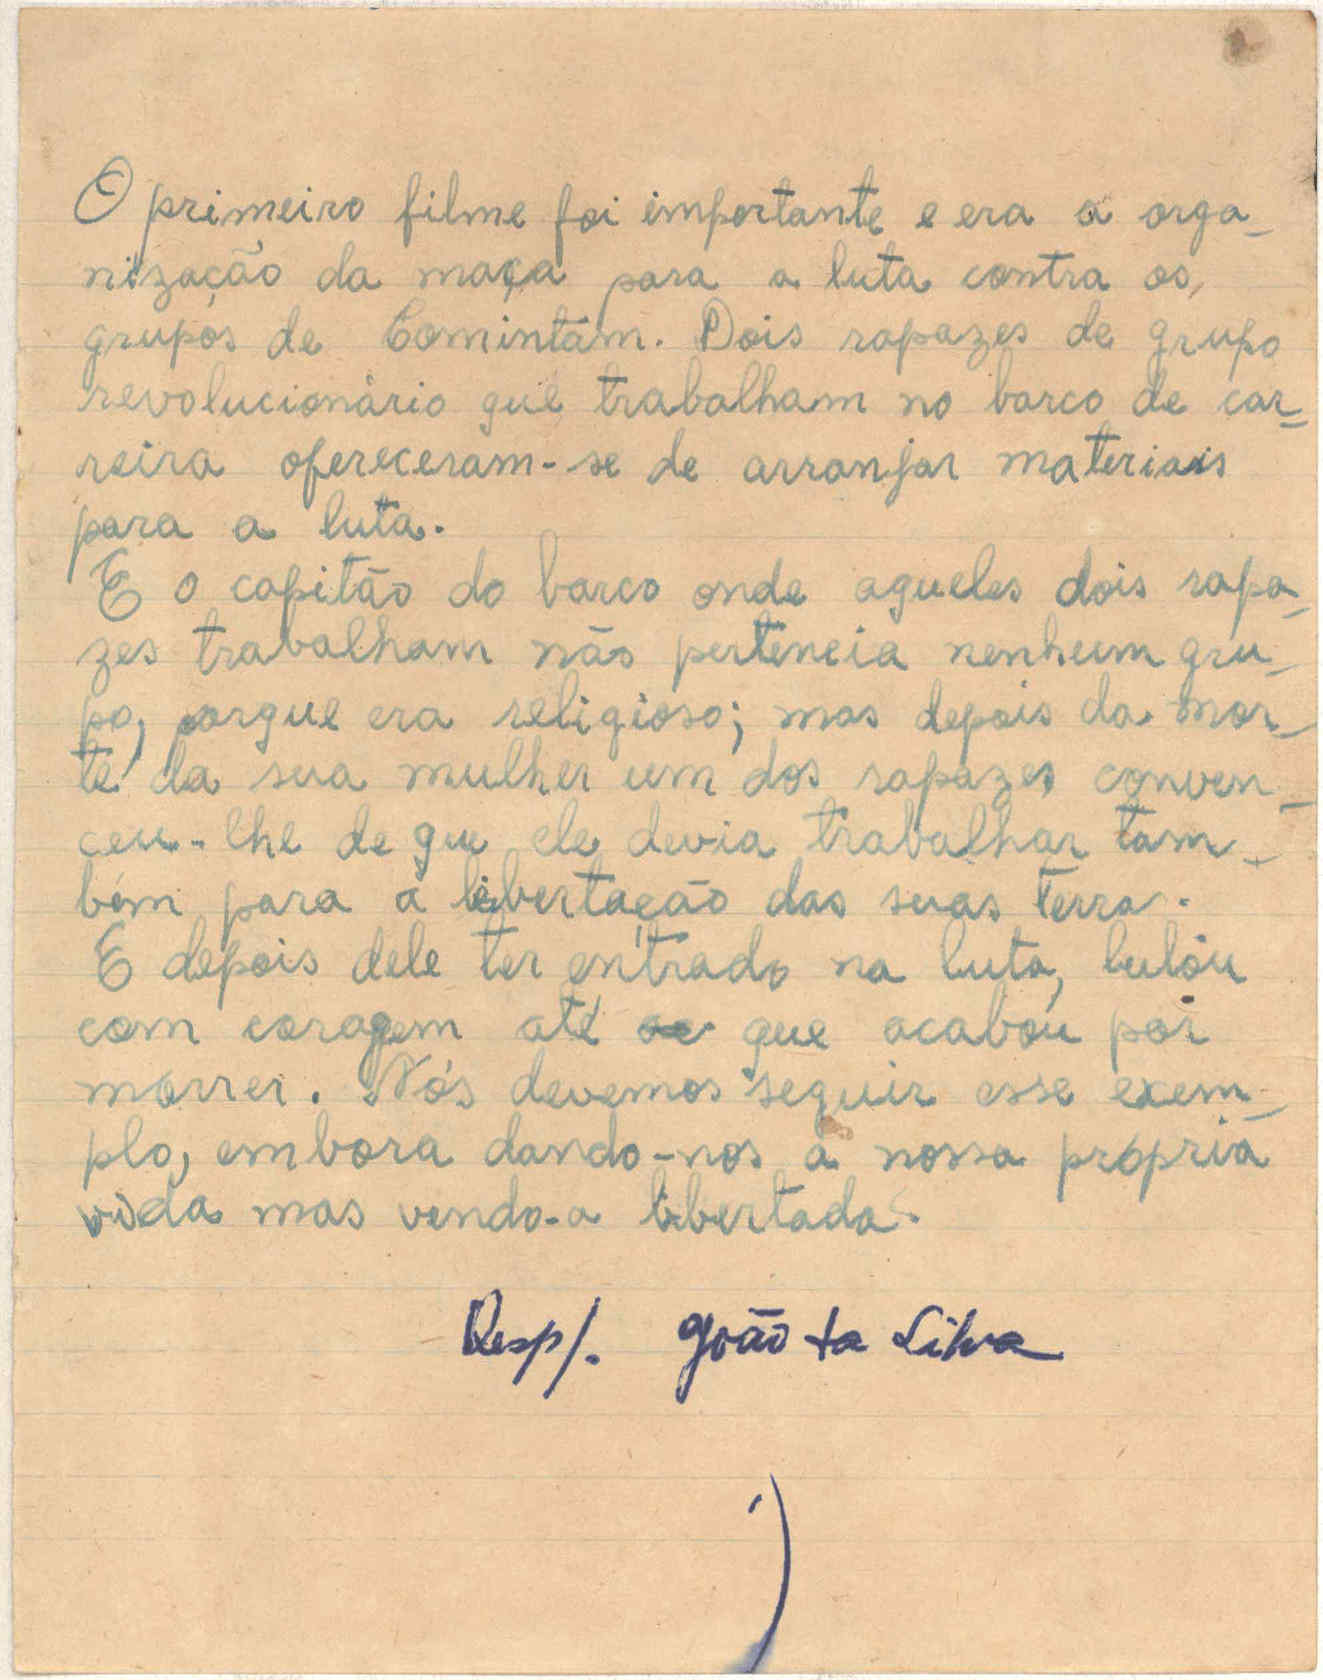 O primeiro filme foi importante e era a orga-
nização da maça para a luta contra os
grupos de Comintám. Dois rapazes de grupo
revolucionário que trabalham no barco de car-
reira ofereceram-se de arranjar materiais
para a luta.
E o capitão do barco onde aqueles dois rapa-
zes trabalham não pertencia nenhum gru-
po, porque era religioso; mas depois da mor-
te da sua mulher um dos rapazes conven-
ceu-lhe de que ele devia trabalhar tam-
bém para a libertação das suas terra.
E depois dele ter entrado na luta, lulou
com coragem até que acabou por
morrer. Nós devemos seguir esse exem-
plo, embora dando-nos a nossa própria
vida mas vendo-a libertada.
Resp/. João da Silva